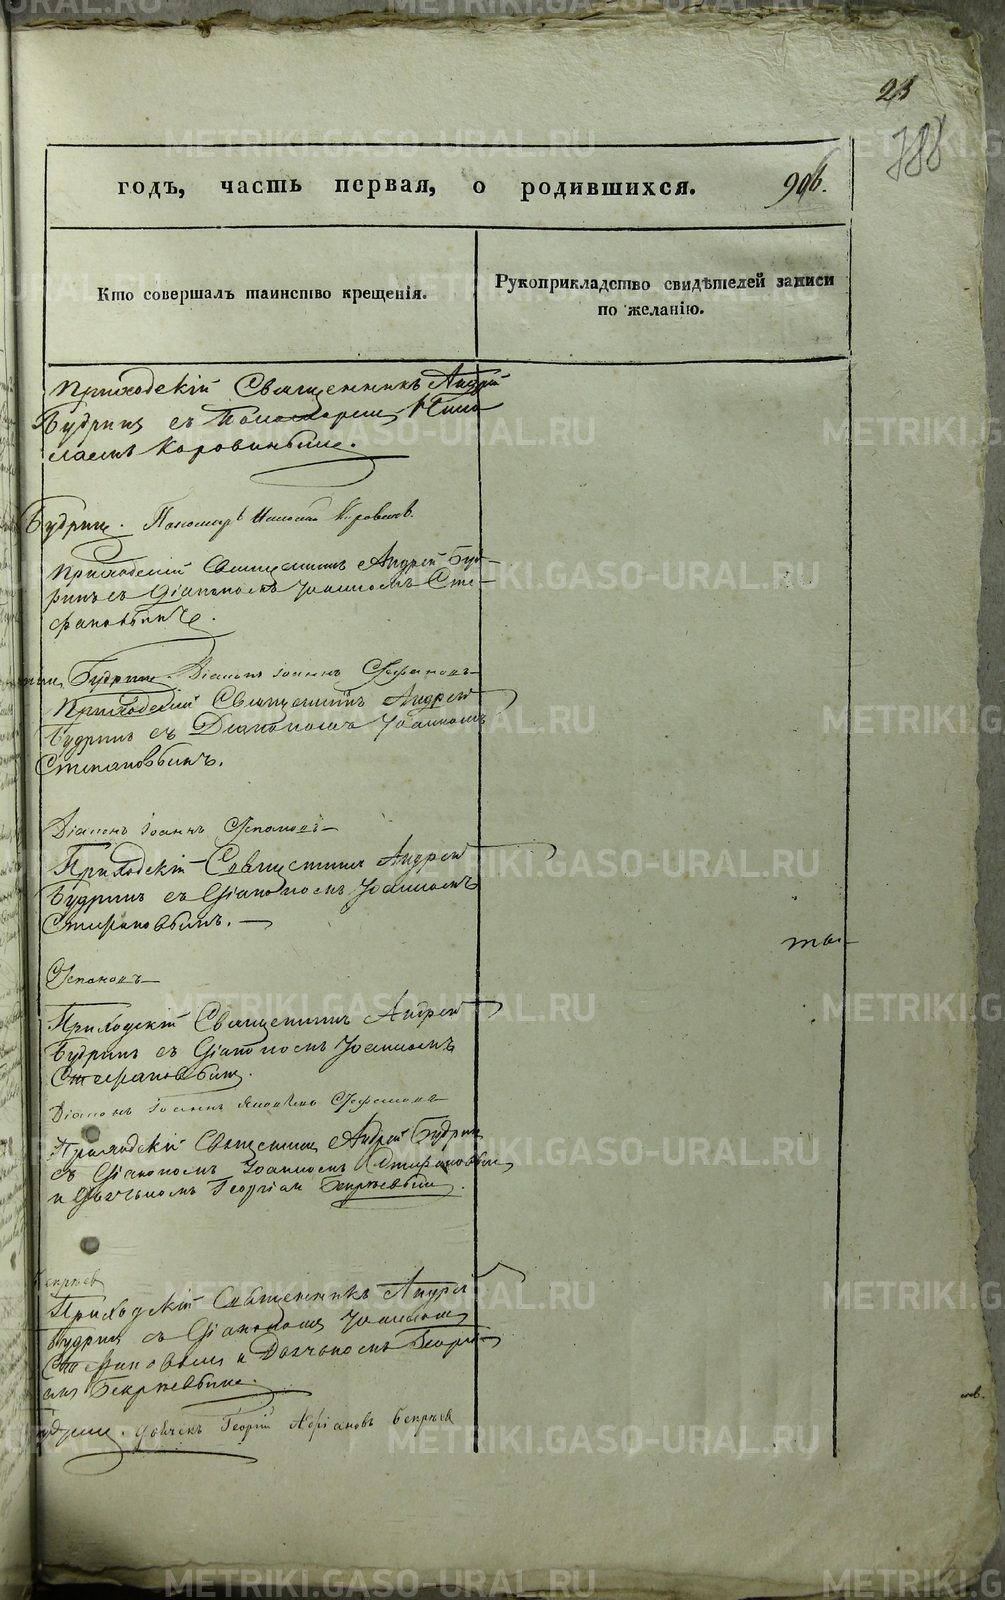 23
788
годъ, часть первая, о родившихся. 906.
Кто совершалъ таинство крещенія.
Рукоприкладство свидѣтелей записи
по желанію.
Приходскій Священникъ Андрей
Будринъ съ Пономаремъ
Коровинымъ.
Будринъ. Пономарь Коровинъ.
Приходскій Священникъ Андрей Буд-
ринъ съ Діакономъ Іоанномъ Сте-
фановымъ.
Будринъ. Діаконъ Іоаннъ Стефановъ
Приходскій Священникъ Андрей
Будринъ съ Діакономъ Іоанномъ
Степановымъ.
Діаконъ Іоаннъ Степановъ
Приходскій Священникъ Андрей
Будринъ съ Діакономъ Іоанномъ
Стефановымъ.
ты
Степановъ
Приходскій Священникъ Андрей
Будринъ съ Діакономъ Іоанномъ
Стефановымъ.
Діаконъ Іоаннъ Стефановъ
Приходскій Священникъ Андрей Будринъ
съ Діакономъ Іоанномъ Стефановымъ
и Дьячкомъ Георгіемъ Бекряевымъ.
Бекряев
Приходскій Священникъ Андрей
Будринъ съ Діакономъ Іоанномъ
Стефановымъ и Дьячкомъ Георгі-
емъ Бекряевымъ.
Дьячекъ Георгій Бекряев
METRIKI.GASO-URAL.RU